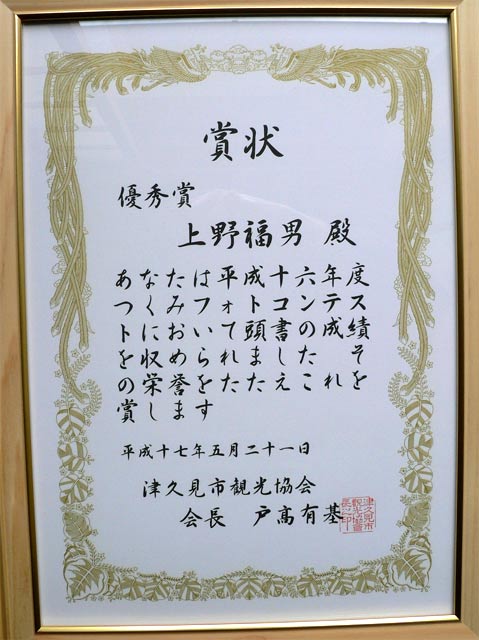 賞状
優秀賞
上野福男 殿
あなたは平成十六年度
つくみフォトコンテス
トにおいて頭書の成績
を収められましたその
栄誉をたたえこれを
賞します
平成十七年五月二十一日
津久見市観光協会
会長 戸高有基